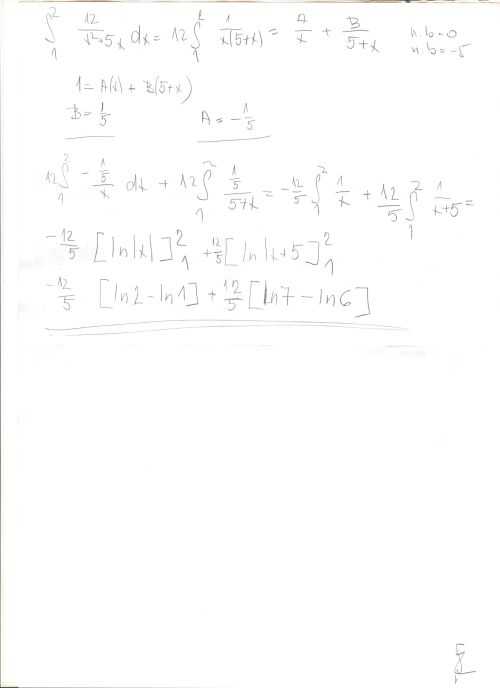 ∫₁² 12/(x²+5x) dx = 12 ∫₁² 1/(x(5+x)) = A/x + B/(5+x) n.b=0
n.b=-5
1 = A(x) + B(5+x)
B = 1/5 A = -1/5
12 ∫₁² -(1/5)/x dx + 12 ∫₁² (1/5)/(5+x) = -12/5 ∫₁² 1/x + 12/5 ∫₁² 1/(x+5) =
-12/5 [ln|x|]₁² + 12/5 [ln|x+5]₁²
-12/5 [ln2-ln1] + 12/5 [ln7-ln6]